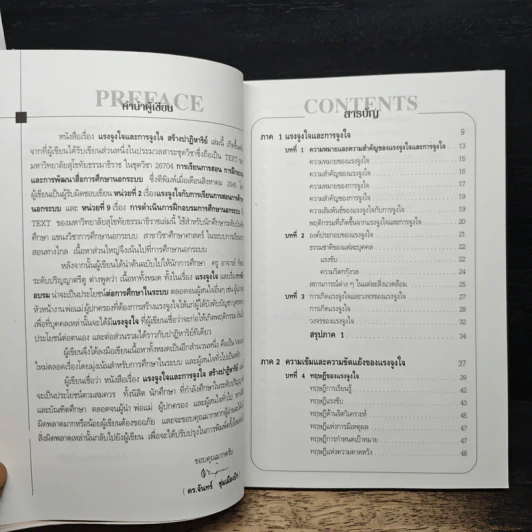 PREFACE
คำนำผู้เขียน
หนังสือเรื่อง แรงจูงใจและการจูงใจ สร้างปาฏิหาริย์ เล่มนี้
จากที่ผู้เขียนได้รับเขียนส่วนหนึ่งในประมวลสาระชุดวิชาซึ่งถือเป็น TEXT
มหาวิทยาลัยสุโขทัยธรรมาธิราช ในชุดวิชา 26704 การเรียนการสอน การฝึกอบรม
และการพัฒนาสื่อการศึกษานอกระบบ ซึ่งตีพิมพ์เมื่อเดือนสิงหาคม 2545
ผู้เขียนเป็นผู้รับผิดชอบเขียน หน่วยที่ 2 เรื่องแรงจูงใจกับการเรียนการสอนการศึกษา
นอกระบบ และ หน่วยที่ 9 เรื่อง การดำเนินการฝึกอบรมการศึกษานอกระบบ
TEXT ของมหาวิทยาลัยสุโขทัยธรรมาธิราชเล่มนี้ ใช้สำหรับนักศึกษาระดับบัณฑิต
ศึกษา แขนงวิชาการศึกษานอกระบบ สาขาวิชาศึกษาศาสตร์ ในระบบการเรียนการ
สอนทางไกล เนื้อหาส่วนใหญ่จึงเน้นไปที่การศึกษานอกระบบ
หลังจากนั้นผู้เขียนได้นำต้นฉบับไปให้นักการศึกษา ครู อาจารย์
ระดับปริญญาตรีดู ต่างพูดว่า เนื้อหาทั้งหมด ทั้งในเรื่อง แรงจูงใจ และเรื่องการฝึก
อบรม น่าจะเป็นประโยชน์ต่อการศึกษาในระบบ ตลอดจนผู้สนใจอื่นๆ เช่น ผู้
หัวหน้างาน พ่อแม่ ผู้ปกครองที่ต้องการสร้างแรงจูงใจให้แก่ผู้ใต้บังคับบัญชา
เพื่อที่บุคคลเหล่านั้นจะได้มีแรงจูงใจ ที่ผู้เขียนเชื่อว่าจะก่อให้เกิดพฤติกรรม
ประโยชน์ต่อตนเอง และต่อส่วนรวมได้ราวกับปาฏิหาริย์ทีเดียว
ผู้เขียนจึงได้ลงมือเขียนเนื้อหาทั้งหมดเป็นอีกสำนวนหนึ่ง คือเป็น
ใหม่ตลอดเรื่องโดยมุ่งเน้นสำหรับการศึกษาในระบบ และผู้สนใจทั่วไปเป็นหลัก
ผู้เขียนเชื่อว่า หนังสือเรื่อง แรงจูงใจและการจูงใจ สร้างปาฏิหาริย์
จะเป็นประโยชน์ตามสมควร ทั้งนิสิต นักศึกษา ที่กำลังศึกษาในระดับปริญญาตรี
และบัณฑิตศึกษา ตลอดจนผู้นำ พ่อแม่ ผู้ปกครอง และผู้สนใจทั่วไป
ผิดพลาดมากหรือน้อยผู้เขียนต้องขออภัย และจะขอบคุณมากหากผู้อ่าน
สิ่งผิดพลาดเหล่านั้นกลับไปยังผู้เขียน เพื่อจะได้ปรับปรุงในการพิมพ์ครั้งต่อไป
ขอบคุณมากครับ
( ดร.จันทร์ ชุ่มเมืองปัก )
CONTENTS
สารบัญ
ภาค 1 แรงจูงใจและการจูงใจ 9
บทที่ 1 ความหมายและความสำคัญของแรงจูงใจและการจูงใจ 13
ความหมายของแรงจูงใจ
ความสำคัญของแรงจูงใจ
ความหมายของการจูงใจ
ความสำคัญของการจูงใจ
ความสัมพันธ์ของแรงจูงใจกับการจูงใจ
พฤติกรรมที่เกิดขึ้นจากแรงจูงใจและการจูงใจ 20
บทที่ 2 องค์ประกอบของแรงจูงใจ
ธรรมชาติของแต่ละบุคคล
แรงขับ
ความวิตกกังวล
สถานการณ์ต่าง ๆ ในแต่ละสิ่งแวดล้อม
บทที่ 3 การเกิดแรงจูงใจและวงจรของแรงจูงใจ 27
การเกิดแรงจูงใจ
วงจรของแรงจูงใจ 32
สรุปภาค 1 34
ภาค 2 ความเข้มและความขัดแย้งของแรงจูงใจ 37
บทที่ 4 ทฤษฎีของแรงจูงใจ 39
ทฤษฎีการเรียนรู้ 42
ทฤษฎีแรงขับ 42
ทฤษฎีด้านจิตวิเคราะห์ 45
ทฤษฎีแห่งการมีเหตุผล 45
ทฤษฎีการกำหนดเป้าหมาย 47
ทฤษฎีแห่งความคาดหวัง 48